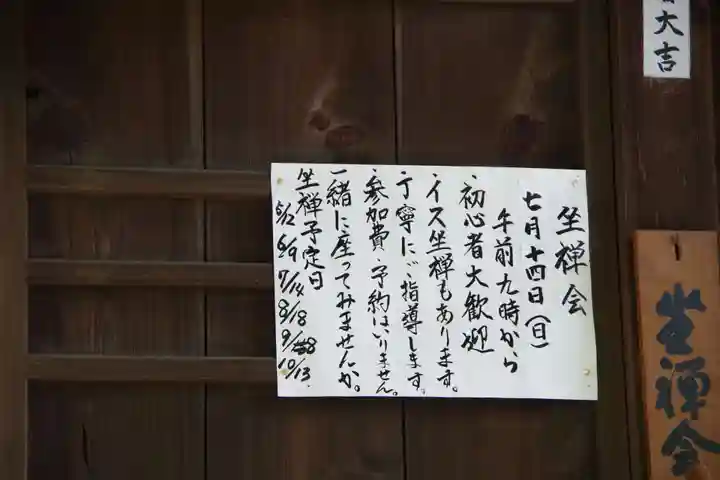 大吉
坐禅会
七月十四日(日)
午前九時から
・初心者大歓迎
・イス坐禅もあります。
・丁寧にご指導します。
・参加費・予約はいりません。
一緒に座ってみませんか。
坐禅予定日
5/12 6/9 7/14 8/18 9/8 10/13
坐禅会